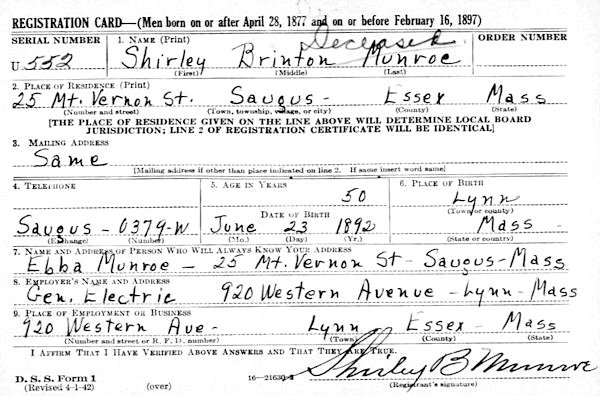 REGISTRATION CARD—(Men born on or after April 28, 1877 and on or before February 16, 1897)
SERIAL NUMBER 1. NAME (Print) Deceased ORDER NUMBER
U 552 Shirley Brinton Munroe
(First) (Middle) (Last)
2. PLACE OF RESIDENCE (Print)
25 Mt. Vernon St. Saugus - Essex Mass
(Number and street) (Town, township, village, or city) (County) (State)
[THE PLACE OF RESIDENCE GIVEN ON THE LINE ABOVE WILL DETERMINE LOCAL BOARD
JURISDICTION; LINE 2 OF REGISTRATION CERTIFICATE WILL BE IDENTICAL]
3. MAILING ADDRESS
Same
[Mailing address if other than place indicated on line 2. If same insert word same]
4. TELEPHONE 5. AGE IN YEARS 6. PLACE OF BIRTH
50 Lynn
DATE OF BIRTH (Town or county)
Saugus - 0379-W June 23 1892 Mass -
(Exchange) (Number) (Mo.) (Day) (Yr.) (State or country)
7. NAME AND ADDRESS OF PERSON WHO WILL ALWAYS KNOW YOUR ADDRESS
Ebba Munroe - 25 Mt. Vernon St - Saugus - Mass
8. EMPLOYER'S NAME AND ADDRESS
Gen. Electric 920 Western Avenue - Lynn - Mass
9. PLACE OF EMPLOYMENT OR BUSINESS
920 Western Ave - Lynn Essex - Mass
(Number and street or R. F. D. number) (Town) (County) (State)
I AFFIRM THAT I HAVE VERIFIED ABOVE ANSWERS AND THAT THEY ARE TRUE.
Shirley B Munroe
D. S. S. Form 1
(Revised 4-1-42) (over) 16—21630-2 (Registrant's signature)